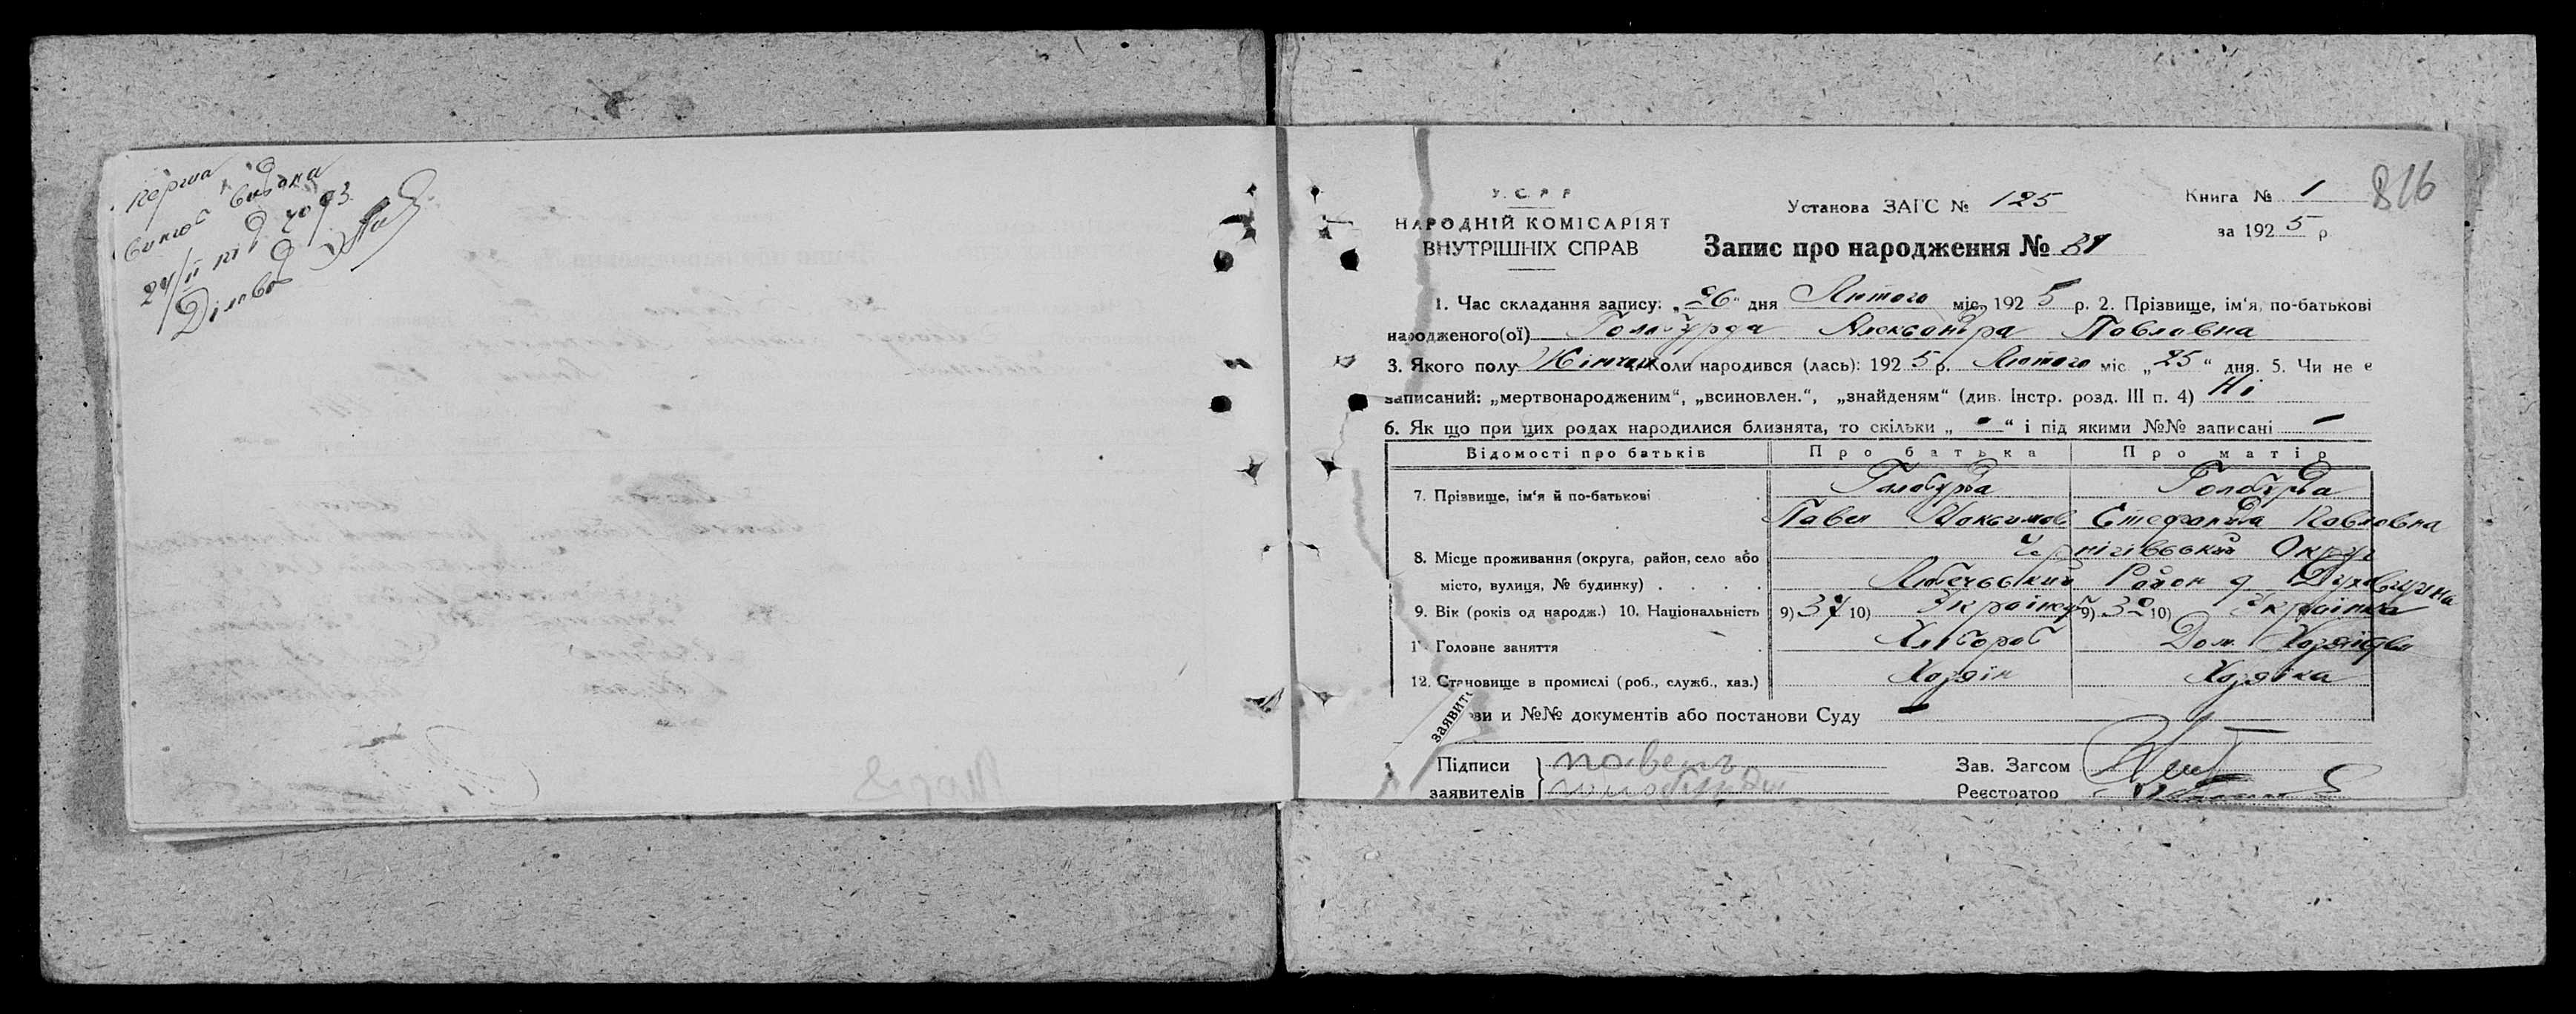 виког видана
24/II
Діловод
У.С.Р.Р
НАРОДНІЙ КОМІСАРІЯТ
ВНУТРІШНІХ СПРАВ
Установа ЗАГС № 125
Книга № 1
за 1925 р.
816
Запис про народження №
1. Час складання запису: „26“ дня Лютого міс, 1925 р. 2. Прізвище, ім‘я, по-батькові
народженого(ої) Голобурда Александра Павловна
3. Якого полу Жіночо Коли народився (лась): 1925 р. Лютого міс. „25“ дня. 5. Чи не є
записаний: „мертвонародженим“, „всиновлен.“, „знайденям“ (див. Інстр. розд. III п. 4) Ні
6. Як що при цих родах народилися близнята, то скільки „ - “ і під якими №№ записані —
Відомості про батьків Про батька Про матір
7. Прізвище, ім‘я й по-батькові Голобурда Голобурда
Павел Максимов Стефанида Павловна
8. Місце проживання (округа, район, село або Чернігівський Округ
місто, вулиця, № будинку) . . . . Любечський Район д
9. Вік (років од народж.) 10. Національність 9) 37 10) Українец 9) 10) Українка
11. Головне заняття Хлібороб Дом.
12. Становище в промислі (роб., служб., хаз.) Хозяін Хозяіка
заявит
ви и №№ документів або постанови Суду —
Підписи павелъ Зав. Загсом
заявителів голобурда Реєстратор